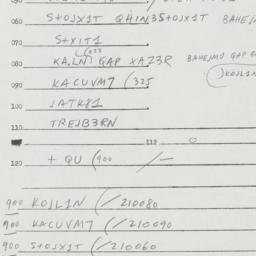 060 S+OJX1T QHIN35+OJX1T
070 S+XIT1
080 KA,LN GAP XAZ3R BAHEJMO GAP
090 KACUVM7 (325
100 JATK81
110 TREJB3RN
112
120 + QU (900 /—
900 KOJL1N (/210080
900 KACUVM7 (/210090
900 S+OJX1T (/210060